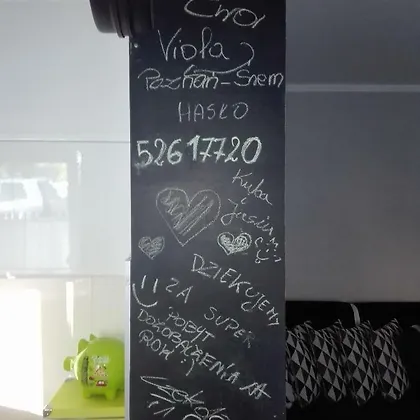 Viola
Poznań-Śrem
HASŁO
52617720
Kuba
i
Jasiu
DZIĘKUJEMY
ZA SUPER
POBYT
DO ZOBACZENIA ZA
ROK :)